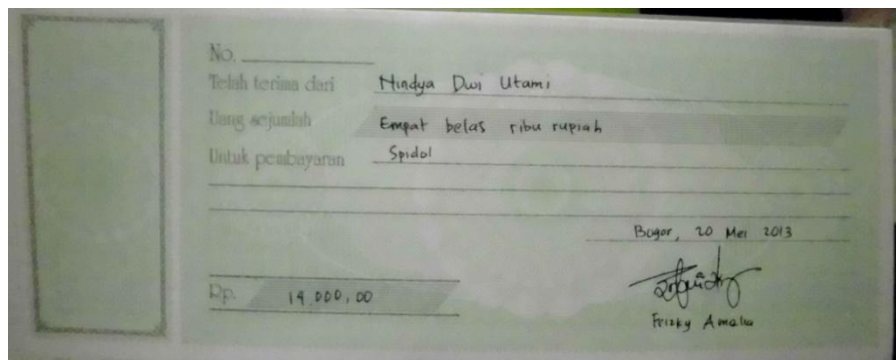 No.
Telah terima dari Nindya Dwi Utami
Uang sejumlah Empat belas ribu rupiah
Untuk pembayaran Spidol
Bogor, 20 Mei 2013
Rp. 14.000,00
Frizky Amalia